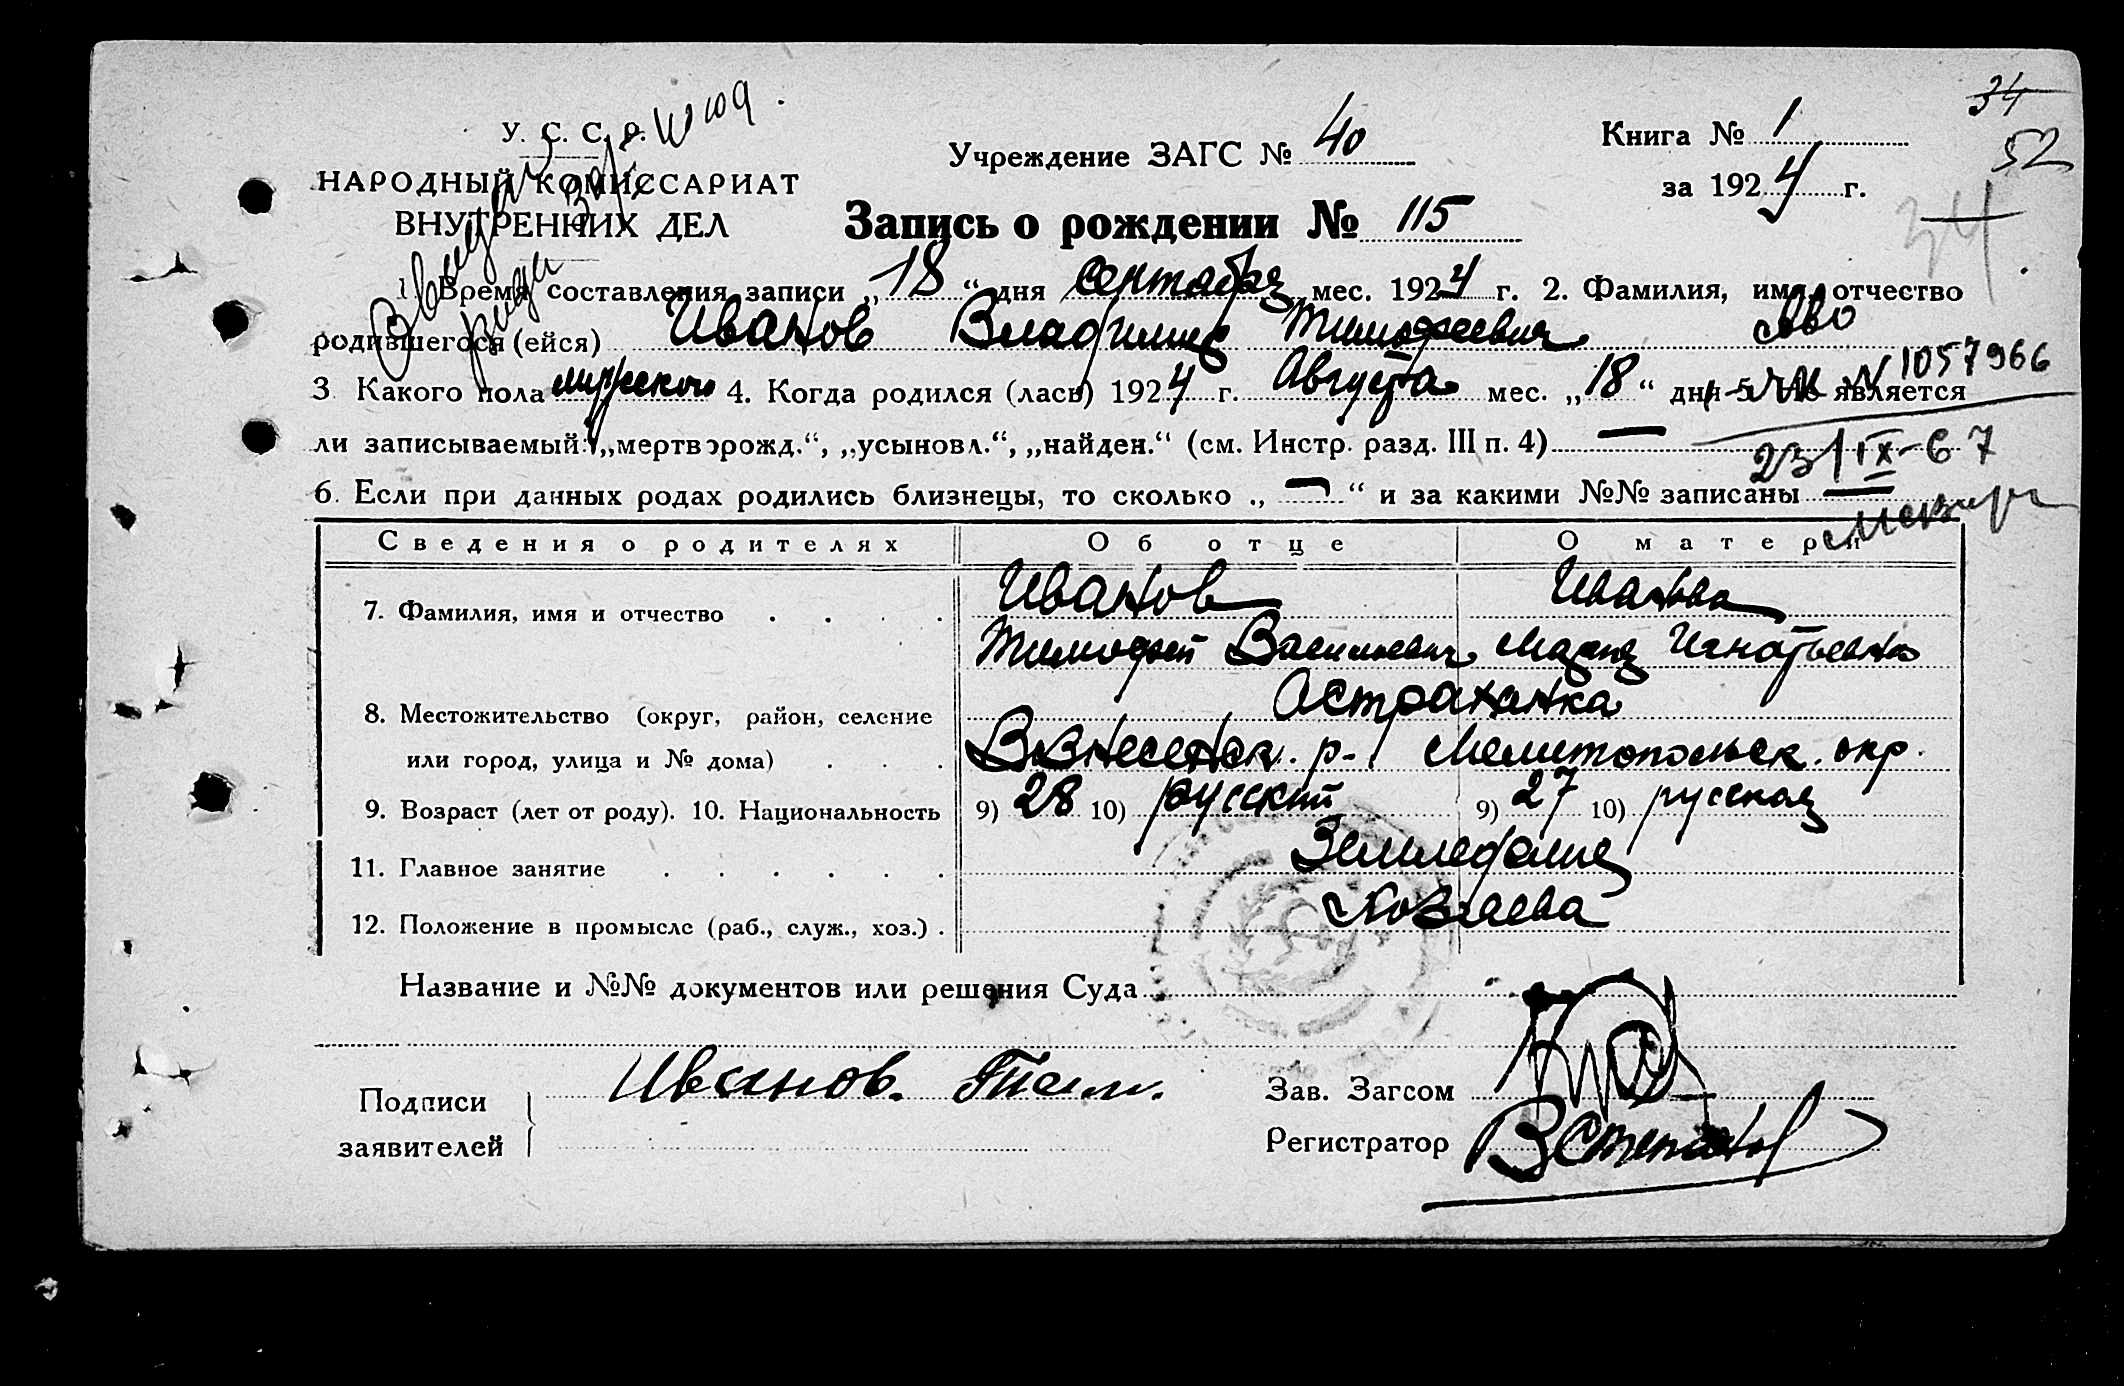 У. С. С. Р.
НАРОДНЫЙ КОМИССАРИАТ
ВНУТРЕННИХ ДЕЛ
Учреждение ЗАГС № 40
Книга № 1
за 1924 г.
34
52
34
Запись о рождении № 115
1. Время составления записи „18“ дня Сентября мес. 1924 г. 2. Фамилия, имя, отчество
родившегося (ейся) Иванов Владимир Тимофеевич
3. Какого пола мужского 4. Когда родился (лась) 1924 г. Августа мес. „18“ дня 5. Не является
ли записываемый: „мертворожд.“, „усыновл.“, „найден.“ (см. Инстр. разд. III п. 4) —
6. Если при данных родах родились близнецы, то сколько „—“ и за какими №№ записаны —
№ 1057966
23/IX-67
Сведения о родителях Об отце О матери
7. Фамилия, имя и отчество Иванов Иванова
Тимофей Васильевич Мария Игнатьевна
8. Местожительство (округ, район, селение Астраханка
или город, улица и № дома) Вознесенск. р. Мелитопольск. окр.
9. Возраст (лет от роду). 10. Национальность 9) 28 10) русский 9) 27 10) русская
11. Главное занятие Земледелие
12. Положение в промысле (раб., служ., хоз.)
Название и №№ документов или решения Суда
Подписи
заявителей
Иванов. Тим.
Зав. Загсом
Регистратор В Степанов